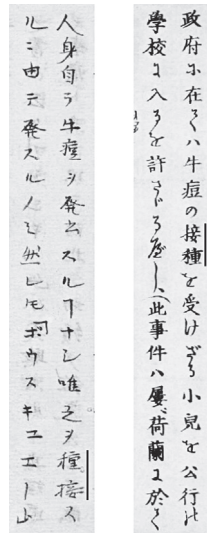 政府に在てハ牛痘の接種を受けざる小兒を公行の
學校に入るを許さゞる屋し(此事件ハ屢荷蘭に於て
人身自ラ牛痘ヲ発出スルヿナシ唯之ヲ種接ス
ルニ由テ発スル人ミ然レモ「ボウスキユエー山